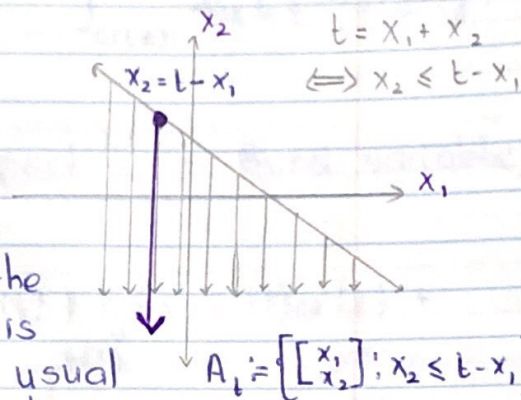 x₂
t = x₁ + x₂
x₂ = t - x₁
⟺ x₂ ≤ t - x₁
x₁
he
is
usual
Aₜ := {[x₁ x₂] : x₂ ≤ t - x₁